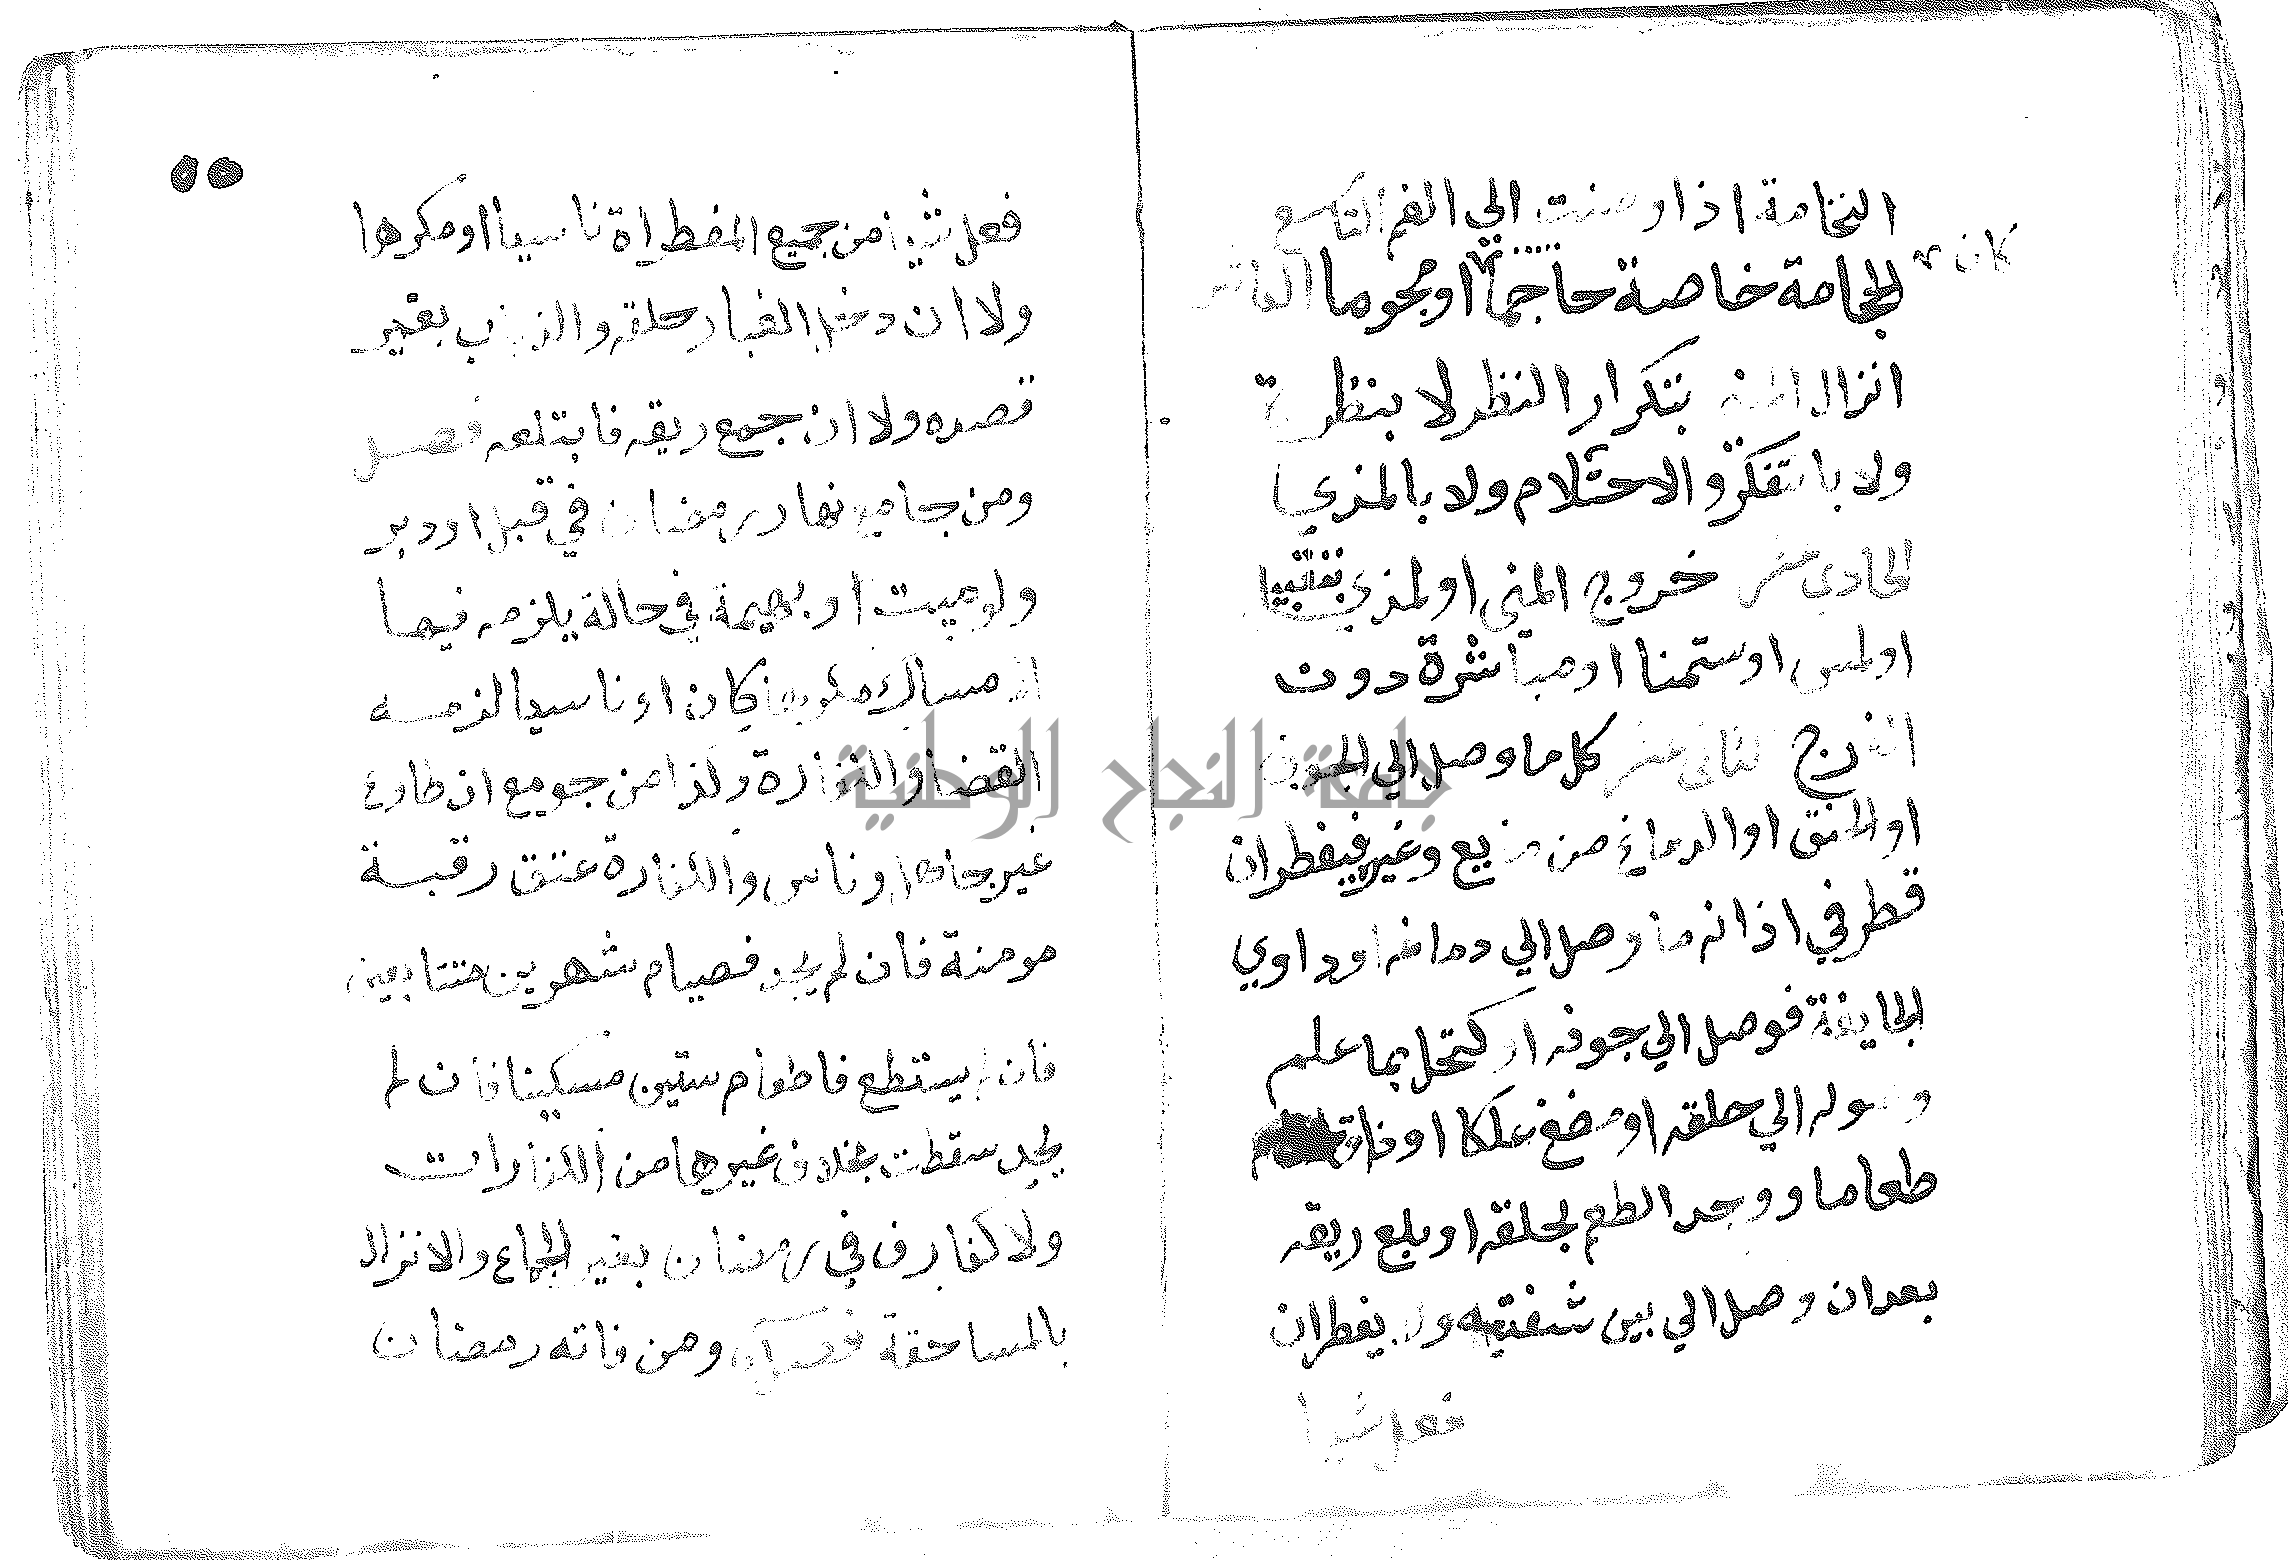 النخامة اذا وصلت الي الفم التاسع
الحجامة خاصة حاجما او محجوما العاشر
كان
انزال المني بتكرار النظر لا بنظرة
ولا بالتفكر والاحتلام ولا بالمذي
الحادي عشر خروج المني او لمذي بتقبيل
او لمس او ستمنا او مباشرة دون
الفرج الثاني عشر كل ما وصل الي الجوف
او الحلق او الدماغ من مايع وغيره فيفطر ان
قطر في اذانه ما وصل الي دماغه او داوي
الجايفة فوصل الي جوفه او كتحل بما علم
وصوله الي حلقه او مضغ علكا او ذاق
طعاما ووجد الطعم بحلقه او بلع ريقه
بعد ان وصل الي بين شفتيه ولا يفطر ان
فعل شيا
٥٥
فعل شيا من جميع المفطراة ناسيا او مكرها
ولا ان دخل الغبار حلقه والذباب بغير
قصده ولا ان جمع ريقه فابتلعه فصل
ومن جامع نهار رمضان في قبل او دبر
ولو ميت او بهيمة في حالة يلزمه فيها
الامساك مكرها كان او ناسيا لزمه
القضا والكفارة وكذا من جومع ان طاوع
غير جاهل وناس والكفارة عتق رقبة
مومنة فان لم يجد فصيام شهرين متتابعين
فان لم يستطع فاطعام ستين مسكينا فان لم
يجد سقطت بخلاف غيرها من الكفارات
ولا كفارة في رمضان بغير الجماع والانزال
بالمساحقة فصل ومن فاته رمضان
جامعة النجاح الوطنية